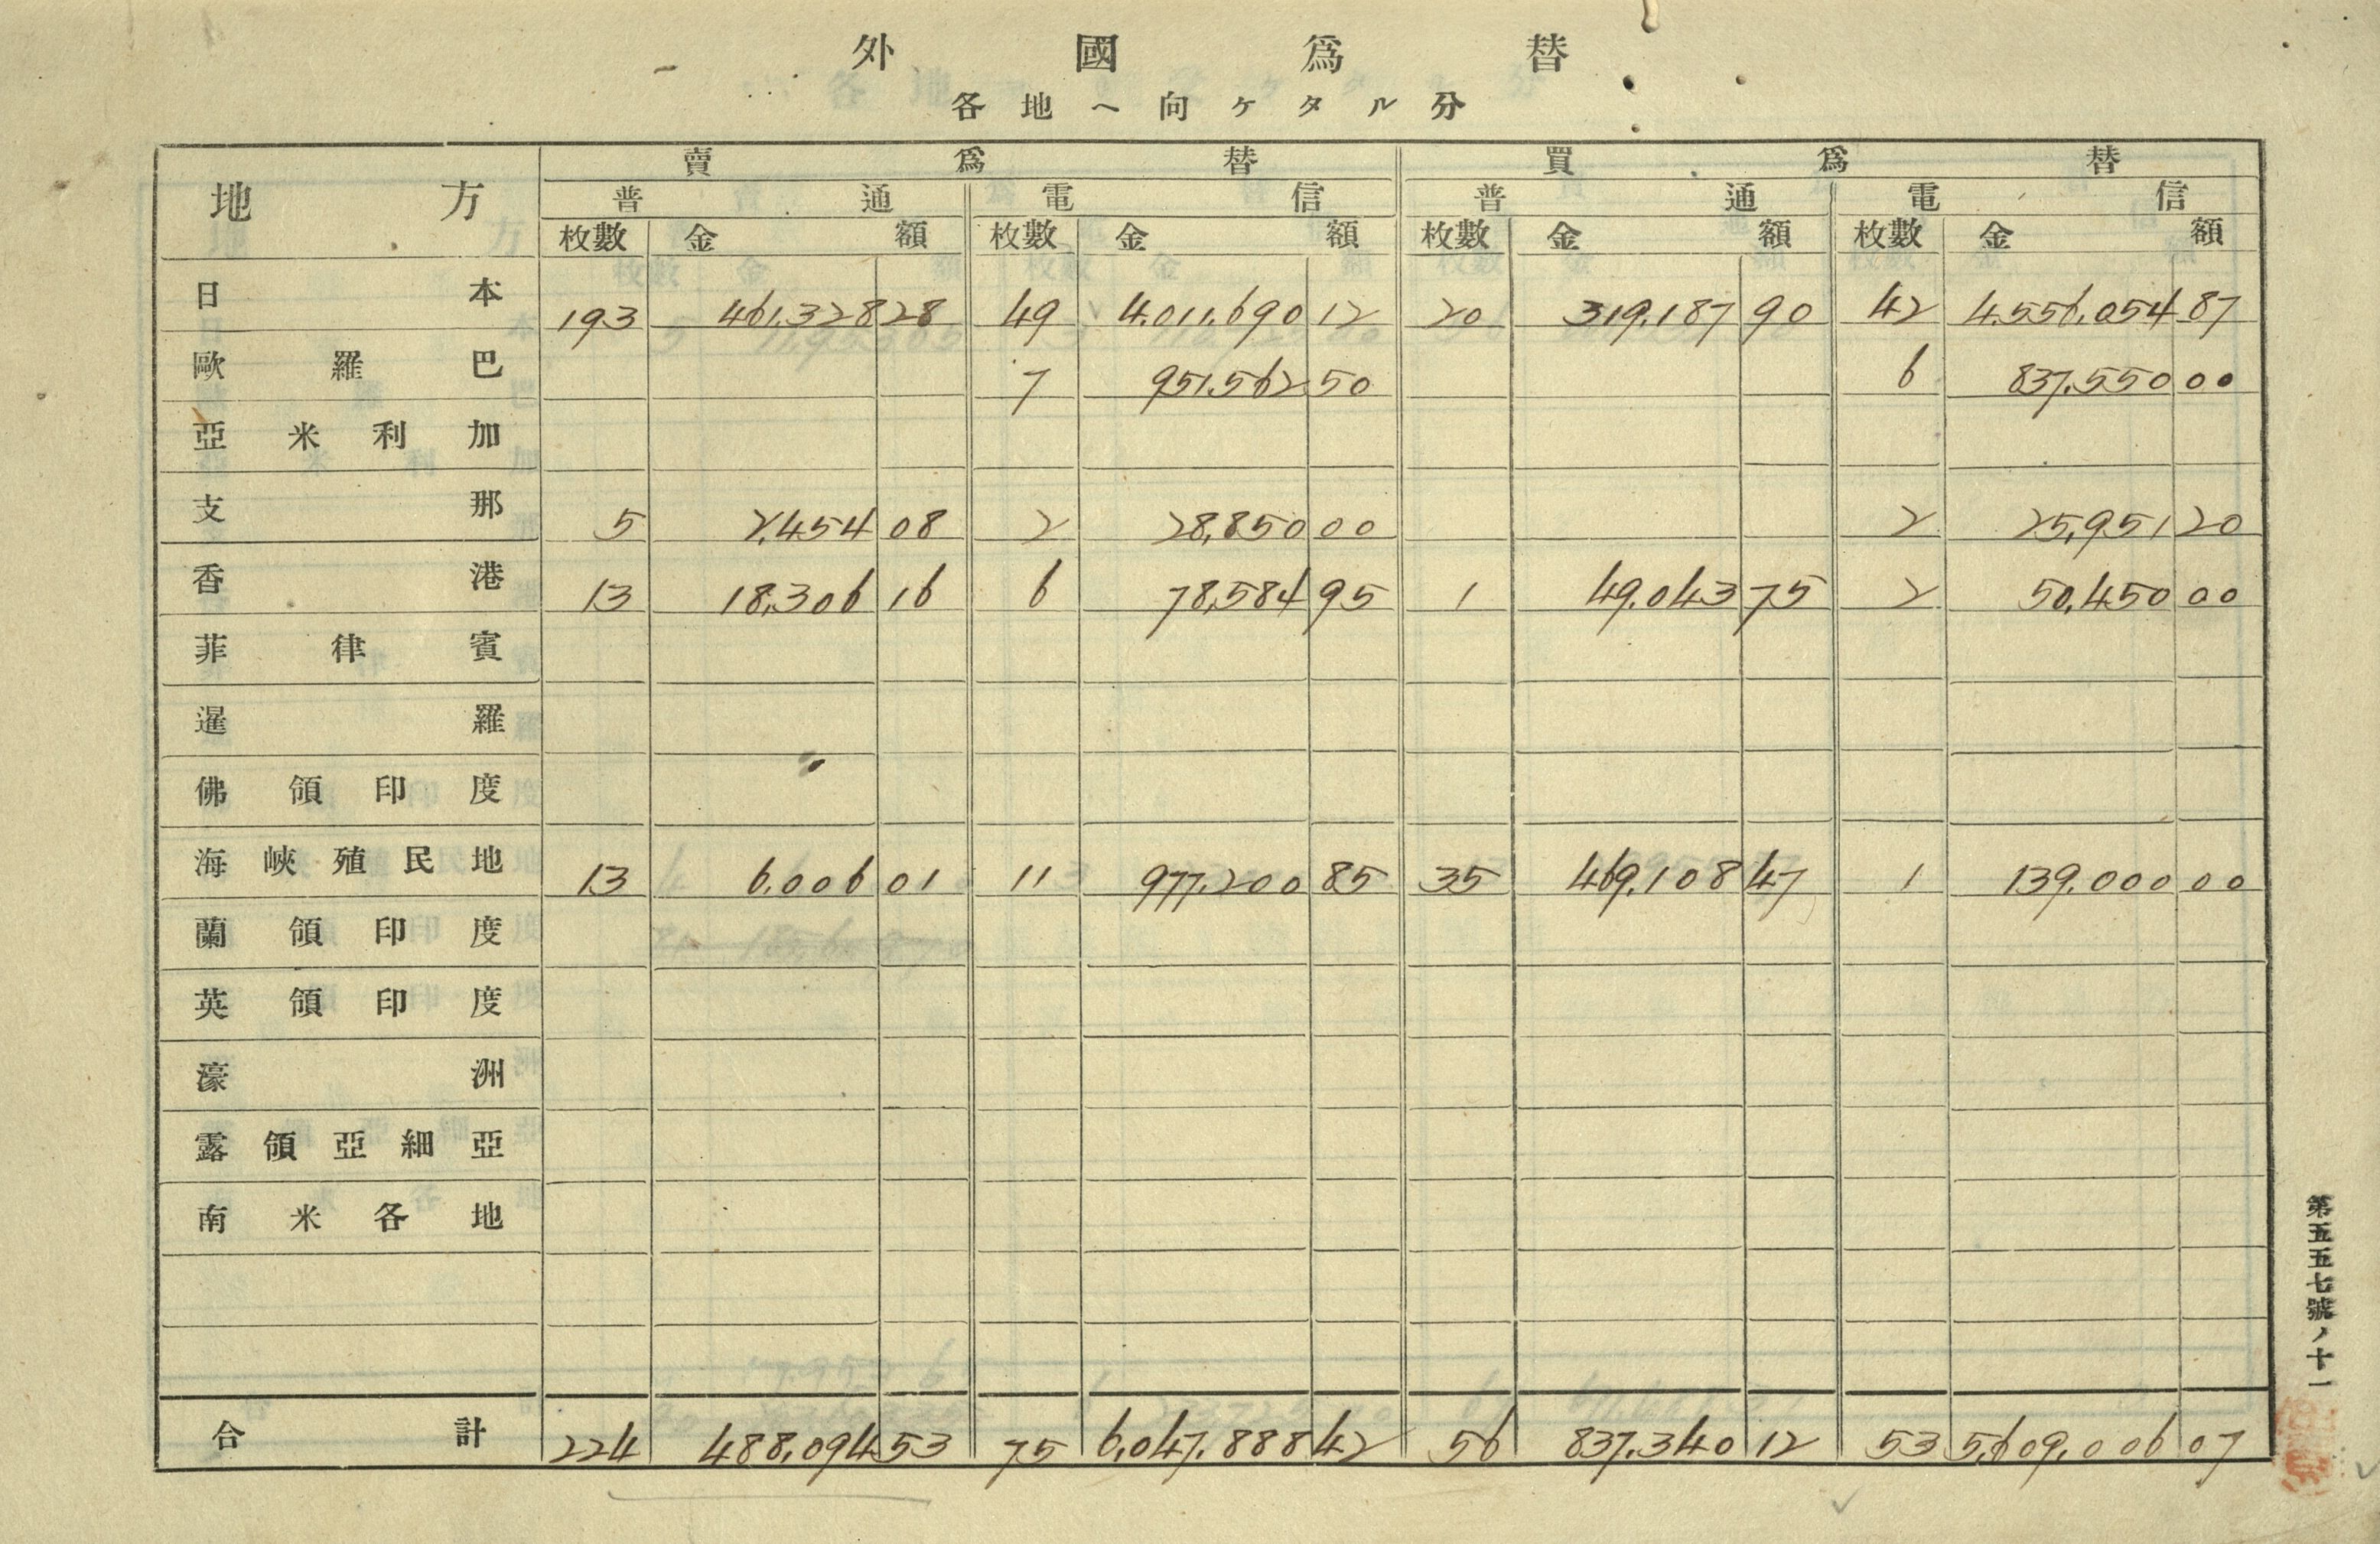 外國爲替
各地ヘ向ケタル分
地方 賣爲替 買爲替
普通 電信 普通 電信
枚數 金額 枚數 金額 枚數 金額 枚數 金額
日本 193 461,328 28 49 4,011,690 12 20 319,187 90 42 4,556,054 87
歐羅巴 7 951,562 50 6 837,550 00
亞米利加
支那 5 2,454 08 2 28,850 00 2 25,951 20
香港 13 18,306 16 6 78,584 95 1 49,043 75 2 50,450 00
菲律賓
暹羅
佛領印度
海峽殖民地 13 6,006 01 11 977,200 85 35 469,108 47 1 139,000 00
蘭領印度
英領印度
濠洲
露領亞細亞
南米各地
合計 224 488,094 53 75 6,047,888 42 56 837,340 12 53 5,609,006 07
第五五七號ノ十一